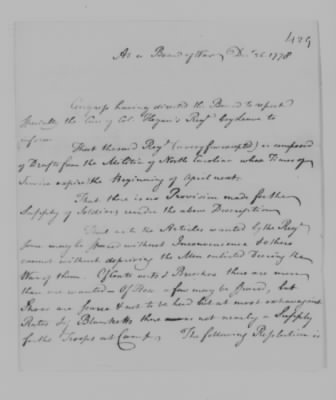 429
At a Board of War Decr 26. 1778
Congress having directed the Board to report
specially the Case of Col. Hogan's Regt beg leave to
inform
That the said Regt (a very few excepted) is composed
of Drafts from the Militia of North Carolina whose Times of
Service expire the Beginning of April next.
That there is no Provision made for the
Supply of Soldiers under the above Description
That as to the Articles wanted by the Regt
some may be spared without Inconvenience & others
cannot without depriving the Men enlisted during the
War of them. Of Coats Vests & Breeches there are more
than are wanted – Of Hose a few may be spared, but
Shoes are scarce & not to be had but at most extravagant
Rates Of Blanketts there is not nearly a Supply
for the Troops at Camp. The following Resolution is